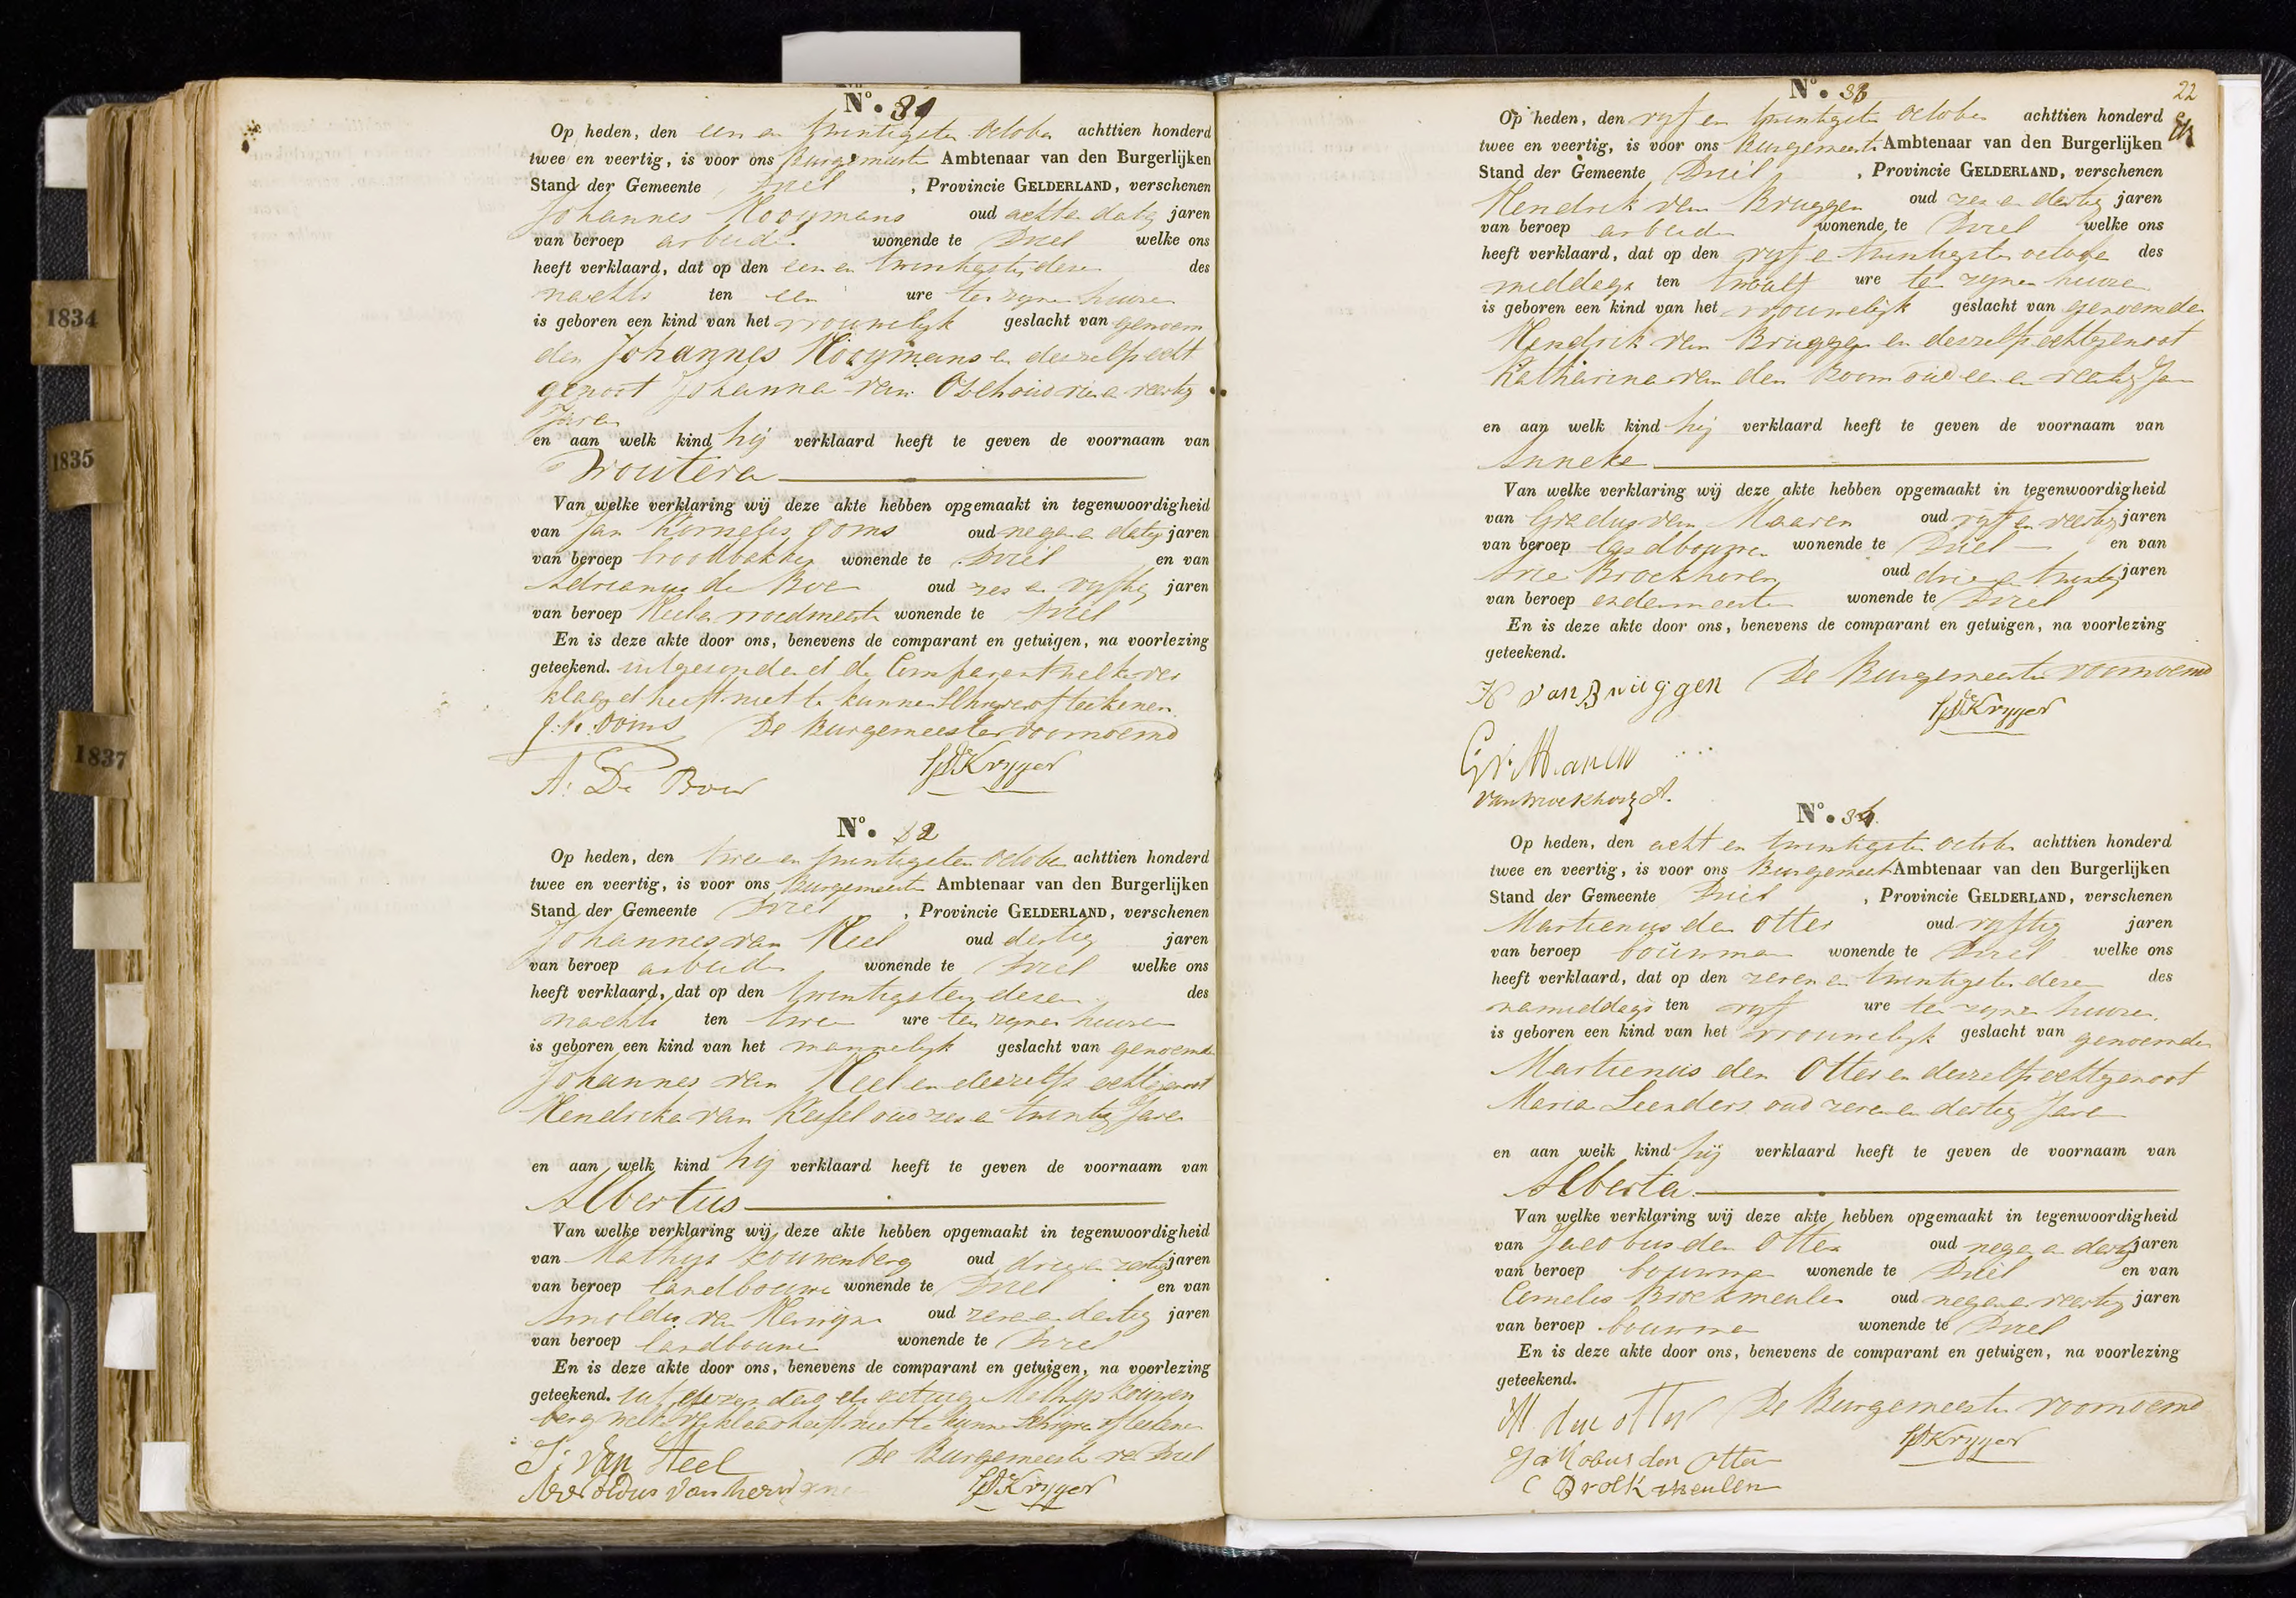 1834
1835
1837
N°. 31
Op heden, den een en twintigsten October achttien honderd
twee en veertig, is voor ons Burgemeester Ambtenaar van den Burgerlijken
Stand der Gemeente Driel , Provincie GELDERLAND, verschenen
Johannes Kooymans oud acht en dertig jaren
van beroep arbeider wonende te Driel welke ons
heeft verklaard, dat op den een en twintigsten dezer des
nachts ten een ure ten zynen huize
is geboren een kind van het vrouwelyk geslacht van genoem
den Johannes Kooymans en deszelfs echt
genoot Johanna van Oselhout oud drie en veertig
Jaren
en aan welk kind hij verklaard heeft te geven de voornaam van
Woutera
Van welke verklaring wij deze akte hebben opgemaakt in tegenwoordigheid
van Jan Kornelis Ooms oud negen en dertig jaren
van beroep broodbakker wonende te Driel en van
Adrianus de Boer oud zes en vyftig jaren
van beroep Heel en vroedmeester wonende te Driel
En is deze akte door ons, benevens de comparant en getuigen, na voorlezing
geteekend. uitgezonderd de Comparant welke ver
klaard heeft niet te kunnen schryven of teekenen
J. K. Ooms De Burgemeester voornoemd
A: De Boer Kryger
N°. 32
Op heden, den twee en twintigsten October achttien honderd
twee en veertig, is voor ons Burgemeester Ambtenaar van den Burgerlijken
Stand der Gemeente Driel , Provincie GELDERLAND, verschenen
Johannes van Heel oud dertig jaren
van beroep arbeider wonende te Driel welke ons
heeft verklaard, dat op den twintigsten dezer des
nachts ten twee ure ten zynen huize
is geboren een kind van het mannelyk geslacht van genoemde
Johannes van Heel en deszelfs echtgenoot
Hendrika van Kessel oud zes en twintig Jaren
en aan welk kind hij verklaard heeft te geven de voornaam van
Albertus
Van welke verklaring wij deze akte hebben opgemaakt in tegenwoordigheid
van Mathys Kouwenberg oud drie en jaren
van beroep landbouwer wonende te Driel en van
Arnoldus van oud zeven en dertig jaren
van beroep landbouwer wonende te Driel
En is deze akte door ons, benevens de comparant en getuigen, na voorlezing
geteekend. uitgezonderd de getuige Mathys Kouwen
berg welke verklaard heeft niet te kunnen schryven of teekenen
J: van Heel De Burgemeester van Driel
Arnoldus van Kryger
22
N°. 33
Op heden, den vyf en twintigsten October achttien honderd
twee en veertig, is voor ons Burgemeester Ambtenaar van den Burgerlijken
Stand der Gemeente Driel , Provincie GELDERLAND, verschenen
Hendrik van Bruggen oud zes en dertig jaren
van beroep arbeider wonende te Driel welke ons
heeft verklaard, dat op den vyf en twintigsten october des
middags ten twaalf ure ten zynen huize
is geboren een kind van het vrouwelijk geslacht van genoemden
Hendrik van Bruggen en deszelfs echtgenoot
Katharina van den Boom oud een en veertig Jaren
en aan welk kind hij verklaard heeft te geven de voornaam van
Anneke
Van welke verklaring wij deze akte hebben opgemaakt in tegenwoordigheid
van Gradus van Maaren oud vyf en veertig jaren
van beroep landbouwer wonende te Driel en van
Arie Broekhoven oud drie en twintig jaren
van beroep ondermeester wonende te Driel
En is deze akte door ons, benevens de comparant en getuigen, na voorlezing
geteekend.
H van Bruggen De Burgemeester voornoemd
Kryger
G. v. Maaren
van Broekhoven A.
N°. 34.
Op heden, den acht en twintigsten october achttien honderd
twee en veertig, is voor ons Burgemeester Ambtenaar van den Burgerlijken
Stand der Gemeente Driel , Provincie GELDERLAND, verschenen
Martienus den Otter oud vyftig jaren
van beroep bouwman wonende te Driel welke ons
heeft verklaard, dat op den zeven en twintigsten dezer des
namiddags ten vyf ure ten zynen huize
is geboren een kind van het vrouwelyk geslacht van genoemden
Martienus den Otter en deszelfs echtgenoot
Maria Leenders oud zeven en dertig Jaren
en aan welk kind hij verklaard heeft te geven de voornaam van
Alberta
Van welke verklaring wij deze akte hebben opgemaakt in tegenwoordigheid
van Jacobus den Otter oud negen en dertig jaren
van beroep bouwman wonende te Driel en van
Cornelis Broekmeulen oud negen en veertig jaren
van beroep bouwman wonende te Driel
En is deze akte door ons, benevens de comparant en getuigen, na voorlezing
geteekend.
M den otter De Burgemeester voornoemd
Jakobus den Otter Kryger
C Broekmeulen